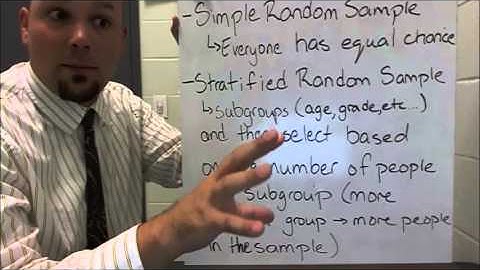 -Simple Random Sample
↳Everyone has equal chance
-Stratified Random Sample
↳subgroups (age, grade, etc...)
and then select based
number of people
subgroup (more
group → more people
in the sample)